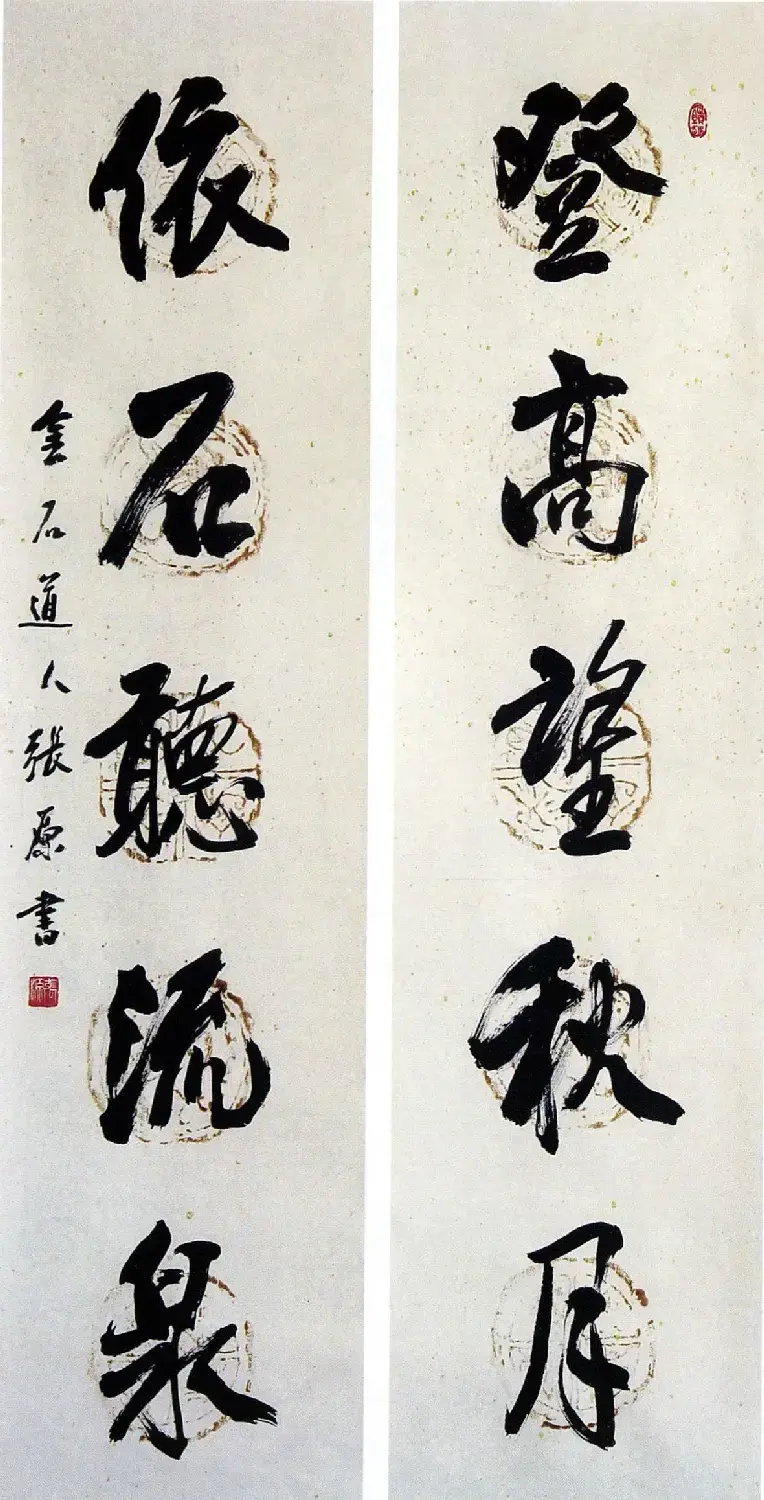 登高望秋月
依石聽流泉
金石道人張原書